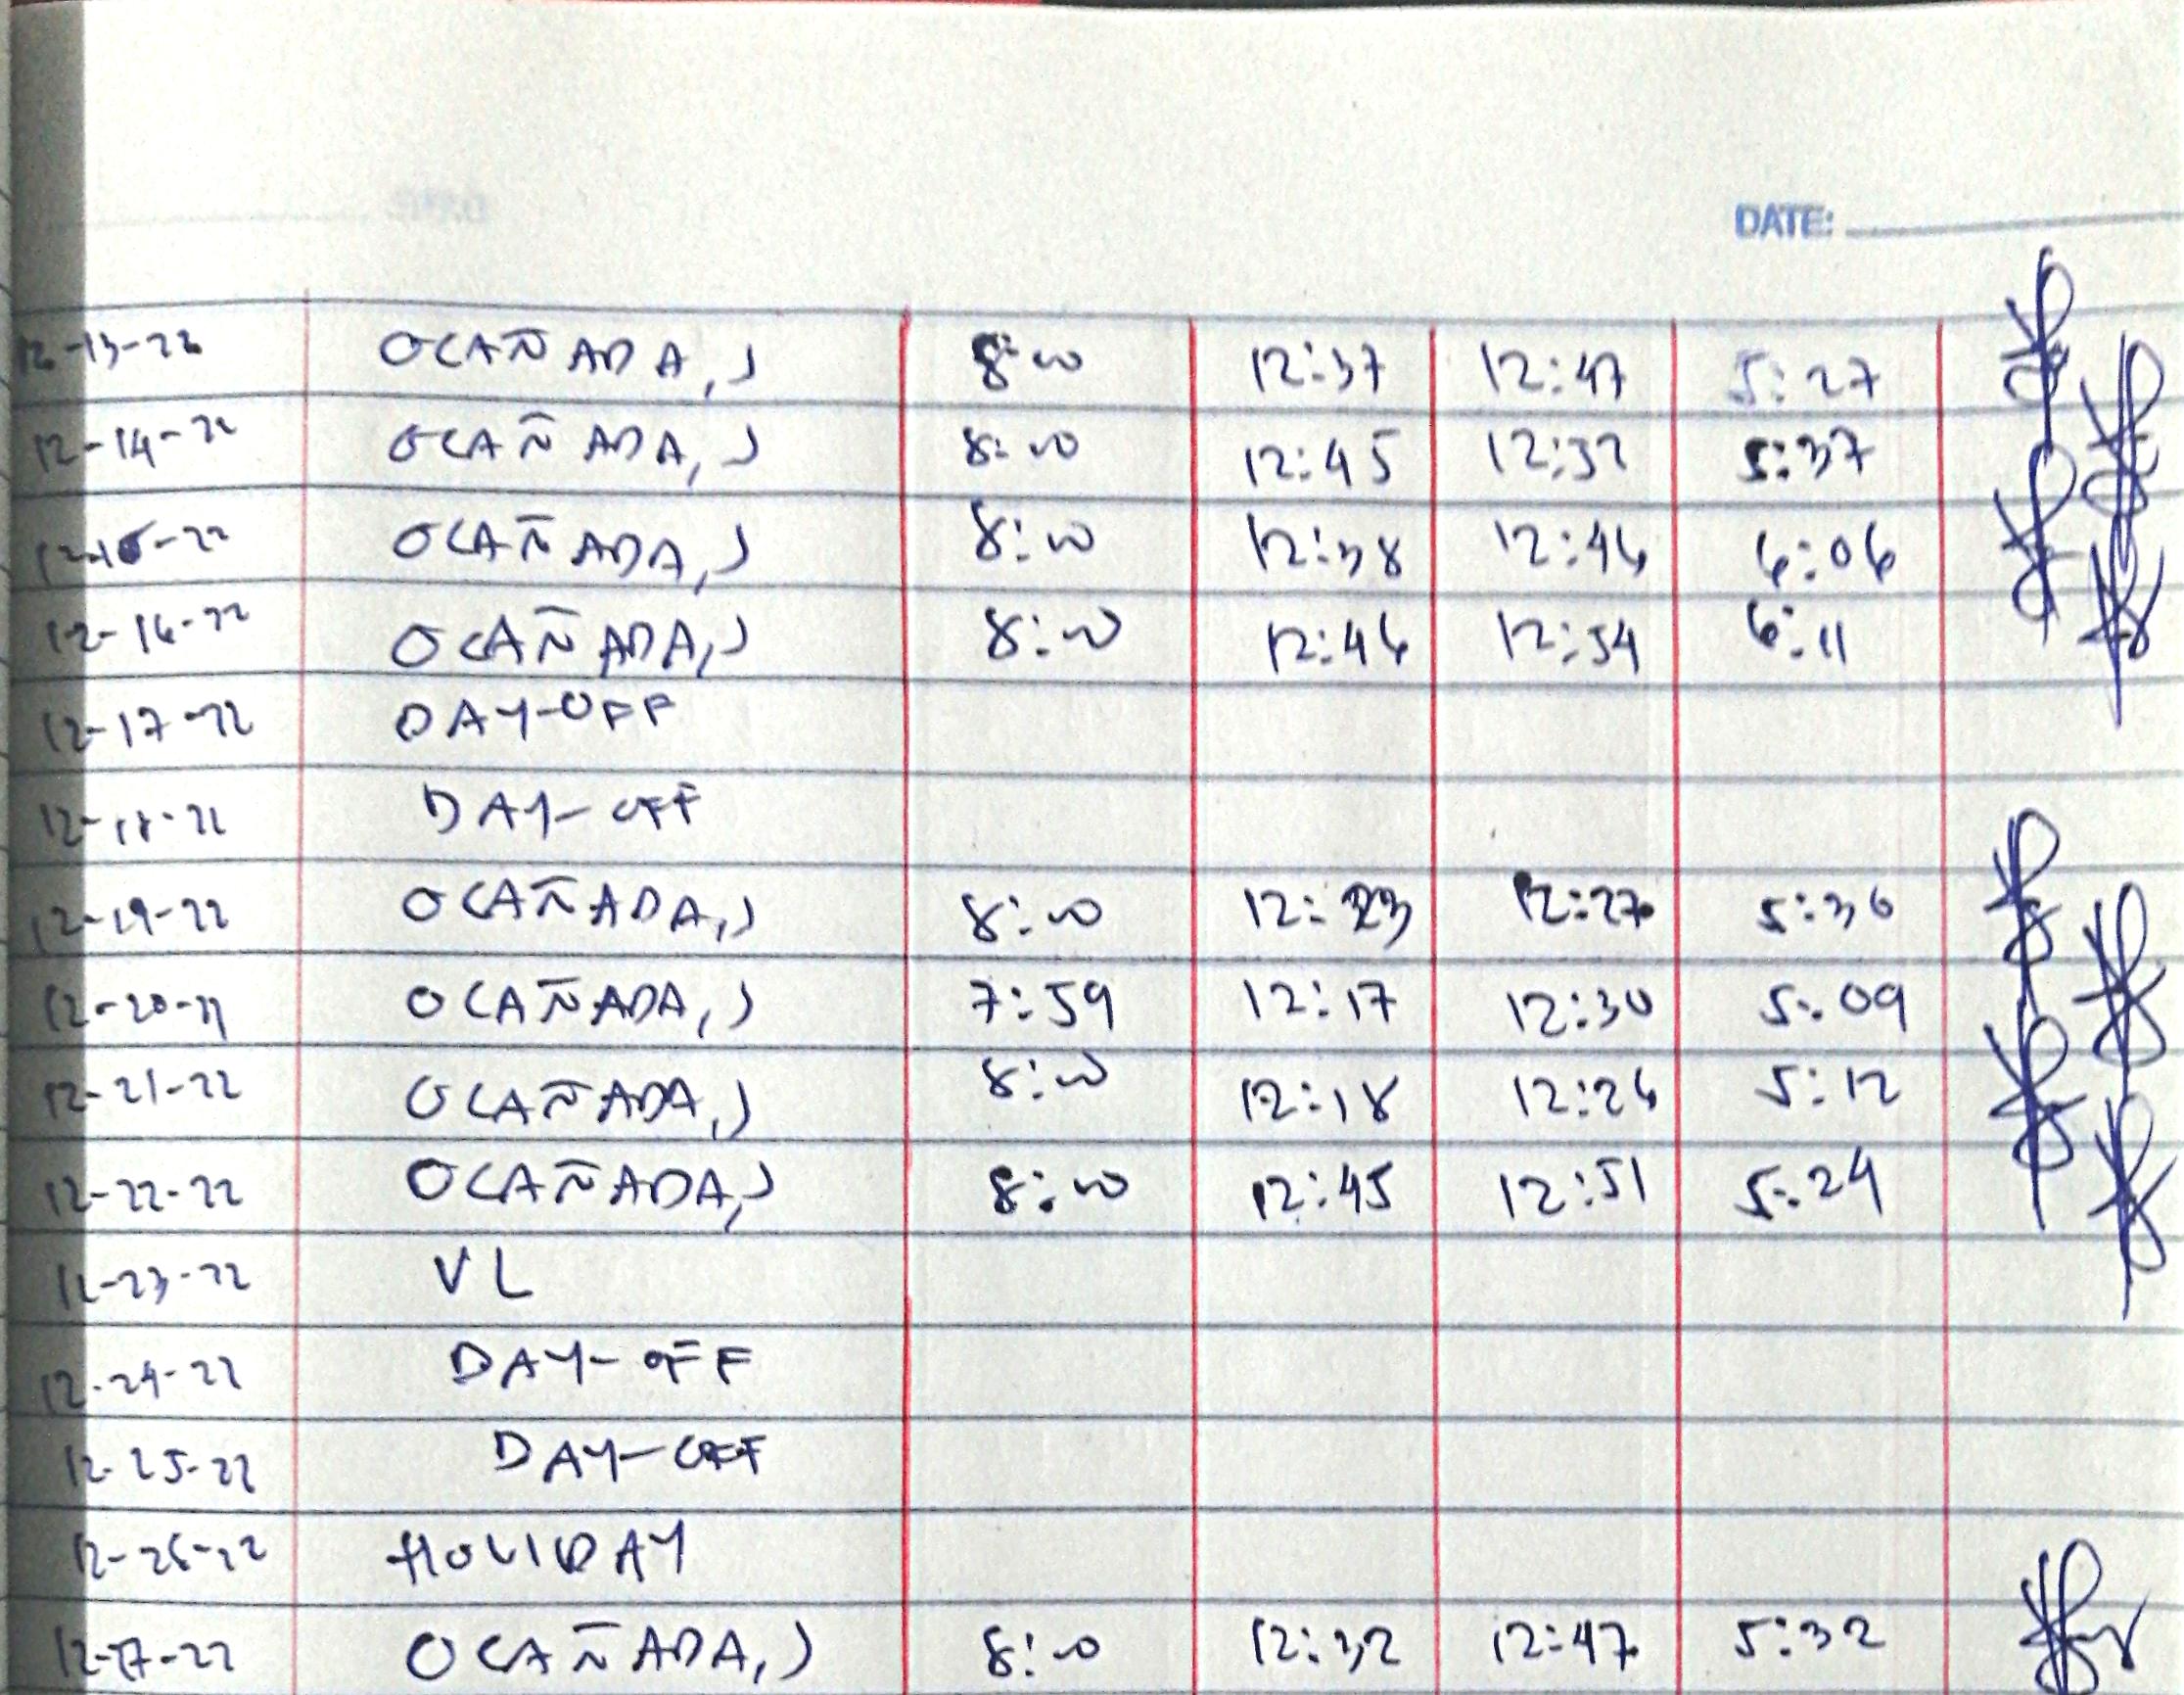 DATE:
12-13-22 OCAÑADA, J 8:00 12:37 12:47 5:27
12-14-22 OCAÑADA, J 8:00 12:45 12:32 5:37
12-15-22 OCAÑADA, J 8:00 12:38 12:46 6:06
12-16-22 OCAÑADA, J 8:00 12:46 12:54 6:11
12-17-22 DAY-OFF
12-18-22 DAY-OFF
12-19-22 OCAÑADA, J 8:00 12:23 12:27 5:36
12-20-22 OCAÑADA, J 7:59 12:17 12:30 5:09
12-21-22 OCAÑADA, J 8:00 12:18 12:26 5:12
12-22-22 OCAÑADA, J 8:00 12:45 12:51 5:24
12-23-22 VL
12-24-22 DAY-OFF
12-25-22 DAY-OFF
12-26-22 HOLIDAY
12-27-22 OCAÑADA, J 8:00 12:32 12:47 5:32